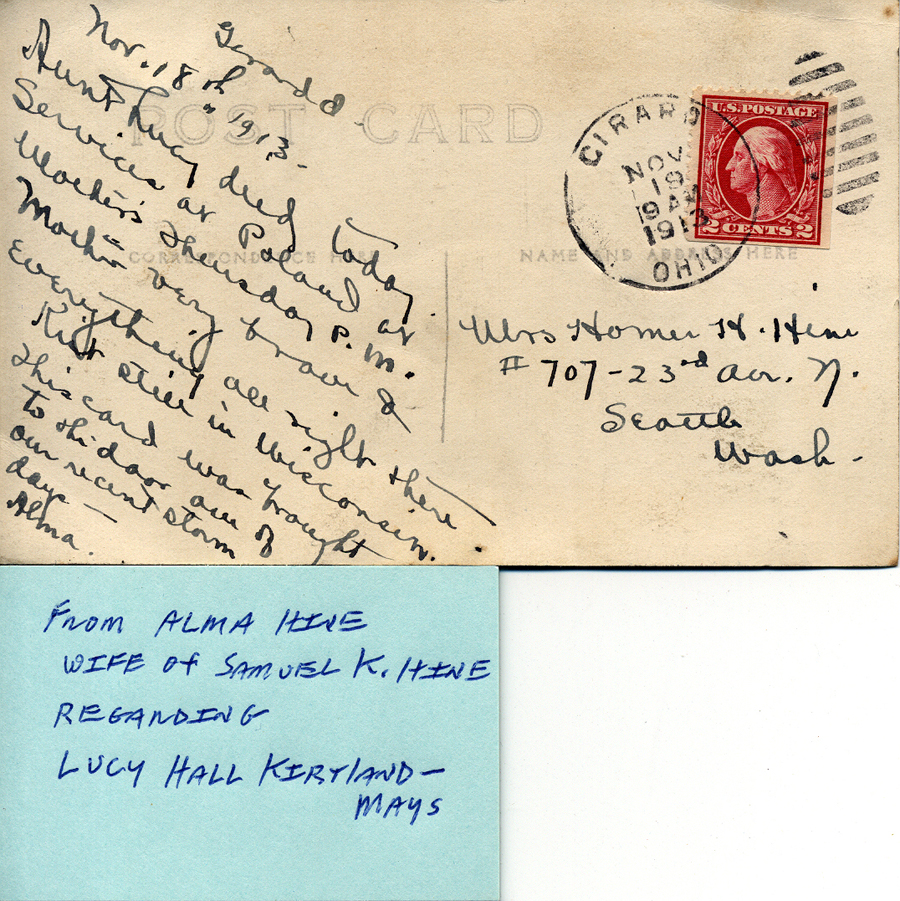 Girard O.
Nov. 18th " 1913 -
Aunt Lucy died today
Services at Poland at
Mother's Thursday P.M.
Mother very brave &
Everything all right there
Kirt still in Wisconsin.
This card was brought
to the door one of
our recent storm
days —
Alma.
POST CARD
CORRESPONDENCE HERE
NAME AND ADDRESS HERE
GIRARD
NOV
19
9 AM
1913
OHIO
U.S. POSTAGE
2 CENTS 2
Mrs Homer H. Hine
# 707 - 23rd Ave. N.
Seattle
Wash -
FROM ALMA HINE
WIFE OF SAMUEL K. HINE
REGARDING
LUCY HALL KIRTLAND -
MAYS